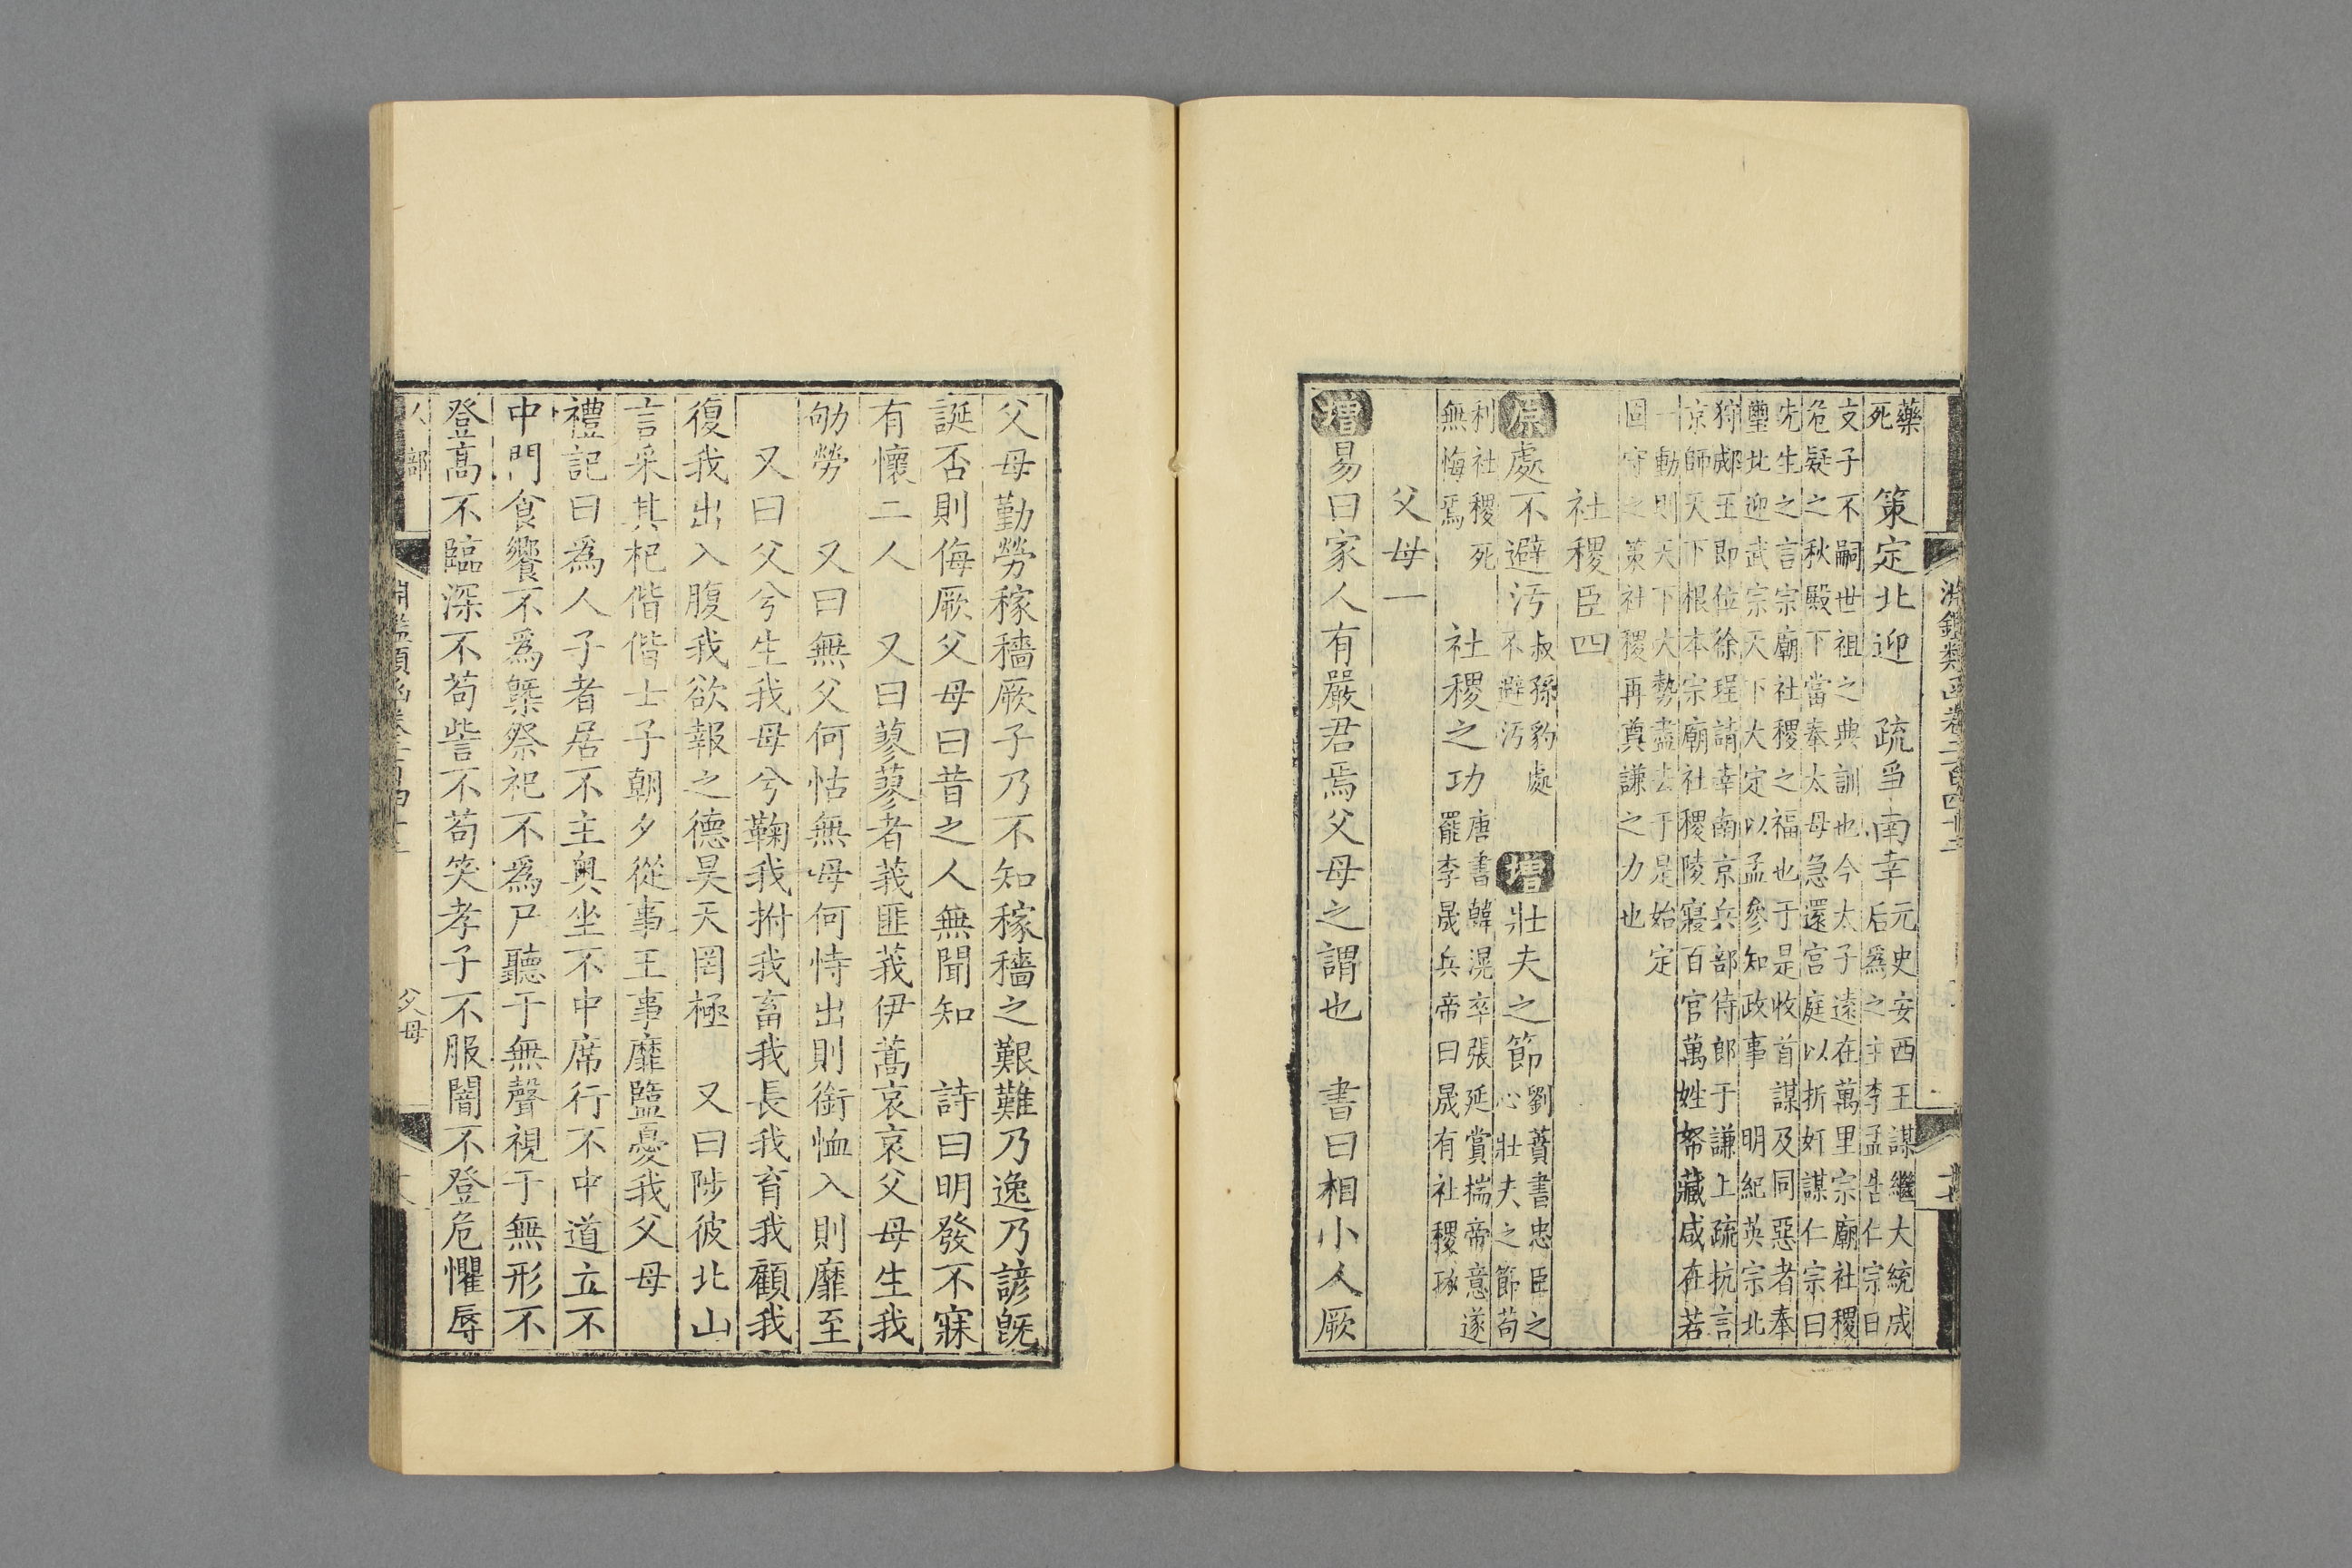 淵鑑類函卷二百四十三
藥
死
策定北迎　疏爭南幸
元史安西王謀繼大統成
后為之主李孟告仁宗曰
支子不嗣世祖之典訓也今太子遠在萬里宗廟社稷
危疑之秋殿下當奉太母急還宮庭以折奸謀仁宗曰
先生之言宗廟社稷之福也于是收首謀及同惡者奉
璽北迎武宗天下大定以孟參知政事　明紀英宗北
狩郕王即位徐珵請幸南京兵部侍郎于謙上疏抗言
京師天下根本宗廟社稷陵寢百官萬姓帑藏咸在若
一動則天下大勢盡去于是始定
固守之策社稷再奠謙之力也
社稷臣四
原處不避污
叔孫豹處
不避污
增壯夫之節
劉蕡書忠臣之
心壯夫之節苟
利社稷死
無悔焉
社稷之功
唐書韓滉卒張延賞揣帝意遂
罷李晟兵帝曰晟有社稷琢
父母一
增易曰家人有嚴君焉父母之謂也　書曰相小人厥
父母勤勞稼穡厥子乃不知稼穡之艱難乃逸乃諺旣
誕否則侮厥父母曰昔之人無聞知　詩曰明發不寐
有懷二人　又曰蓼蓼者莪匪莪伊蒿哀哀父母生我
劬勞　又曰無父何怙無母何恃出則銜恤入則靡至
又曰父兮生我母兮鞠我拊我畜我長我育我顧我
復我出入腹我欲報之德昊天罔極　又曰陟彼北山
言采其杞偕偕士子朝夕從事王事靡盬憂我父母
禮記曰爲人子者居不主奧坐不中席行不中道立不
中門食饗不爲槩祭祀不爲尸聽于無聲視于無形不
登高不臨深不苟訾不苟笑孝子不服闇不登危懼辱
人部
淵鑑類函卷二百四十三
父母